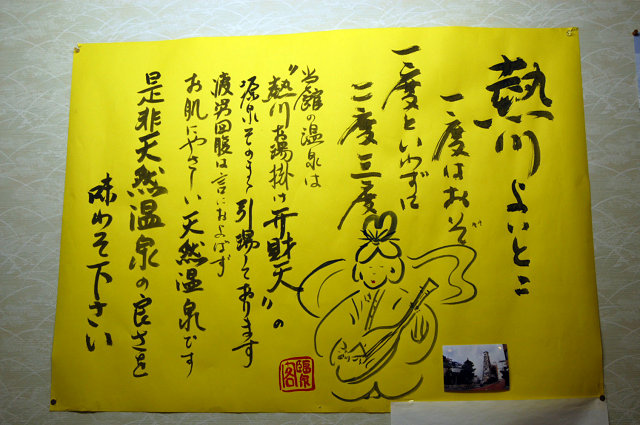 熱川よいとこ
一度はおぞ
一度といわずに
二度三度
当館の温泉は
"熱川お湯掛け弁財天"の
源泉そのまゝ引湯しております
疲労回服は言におよばず
お肌にやさしい天然温泉です
是非天然温泉の良さを
味わそ下さい